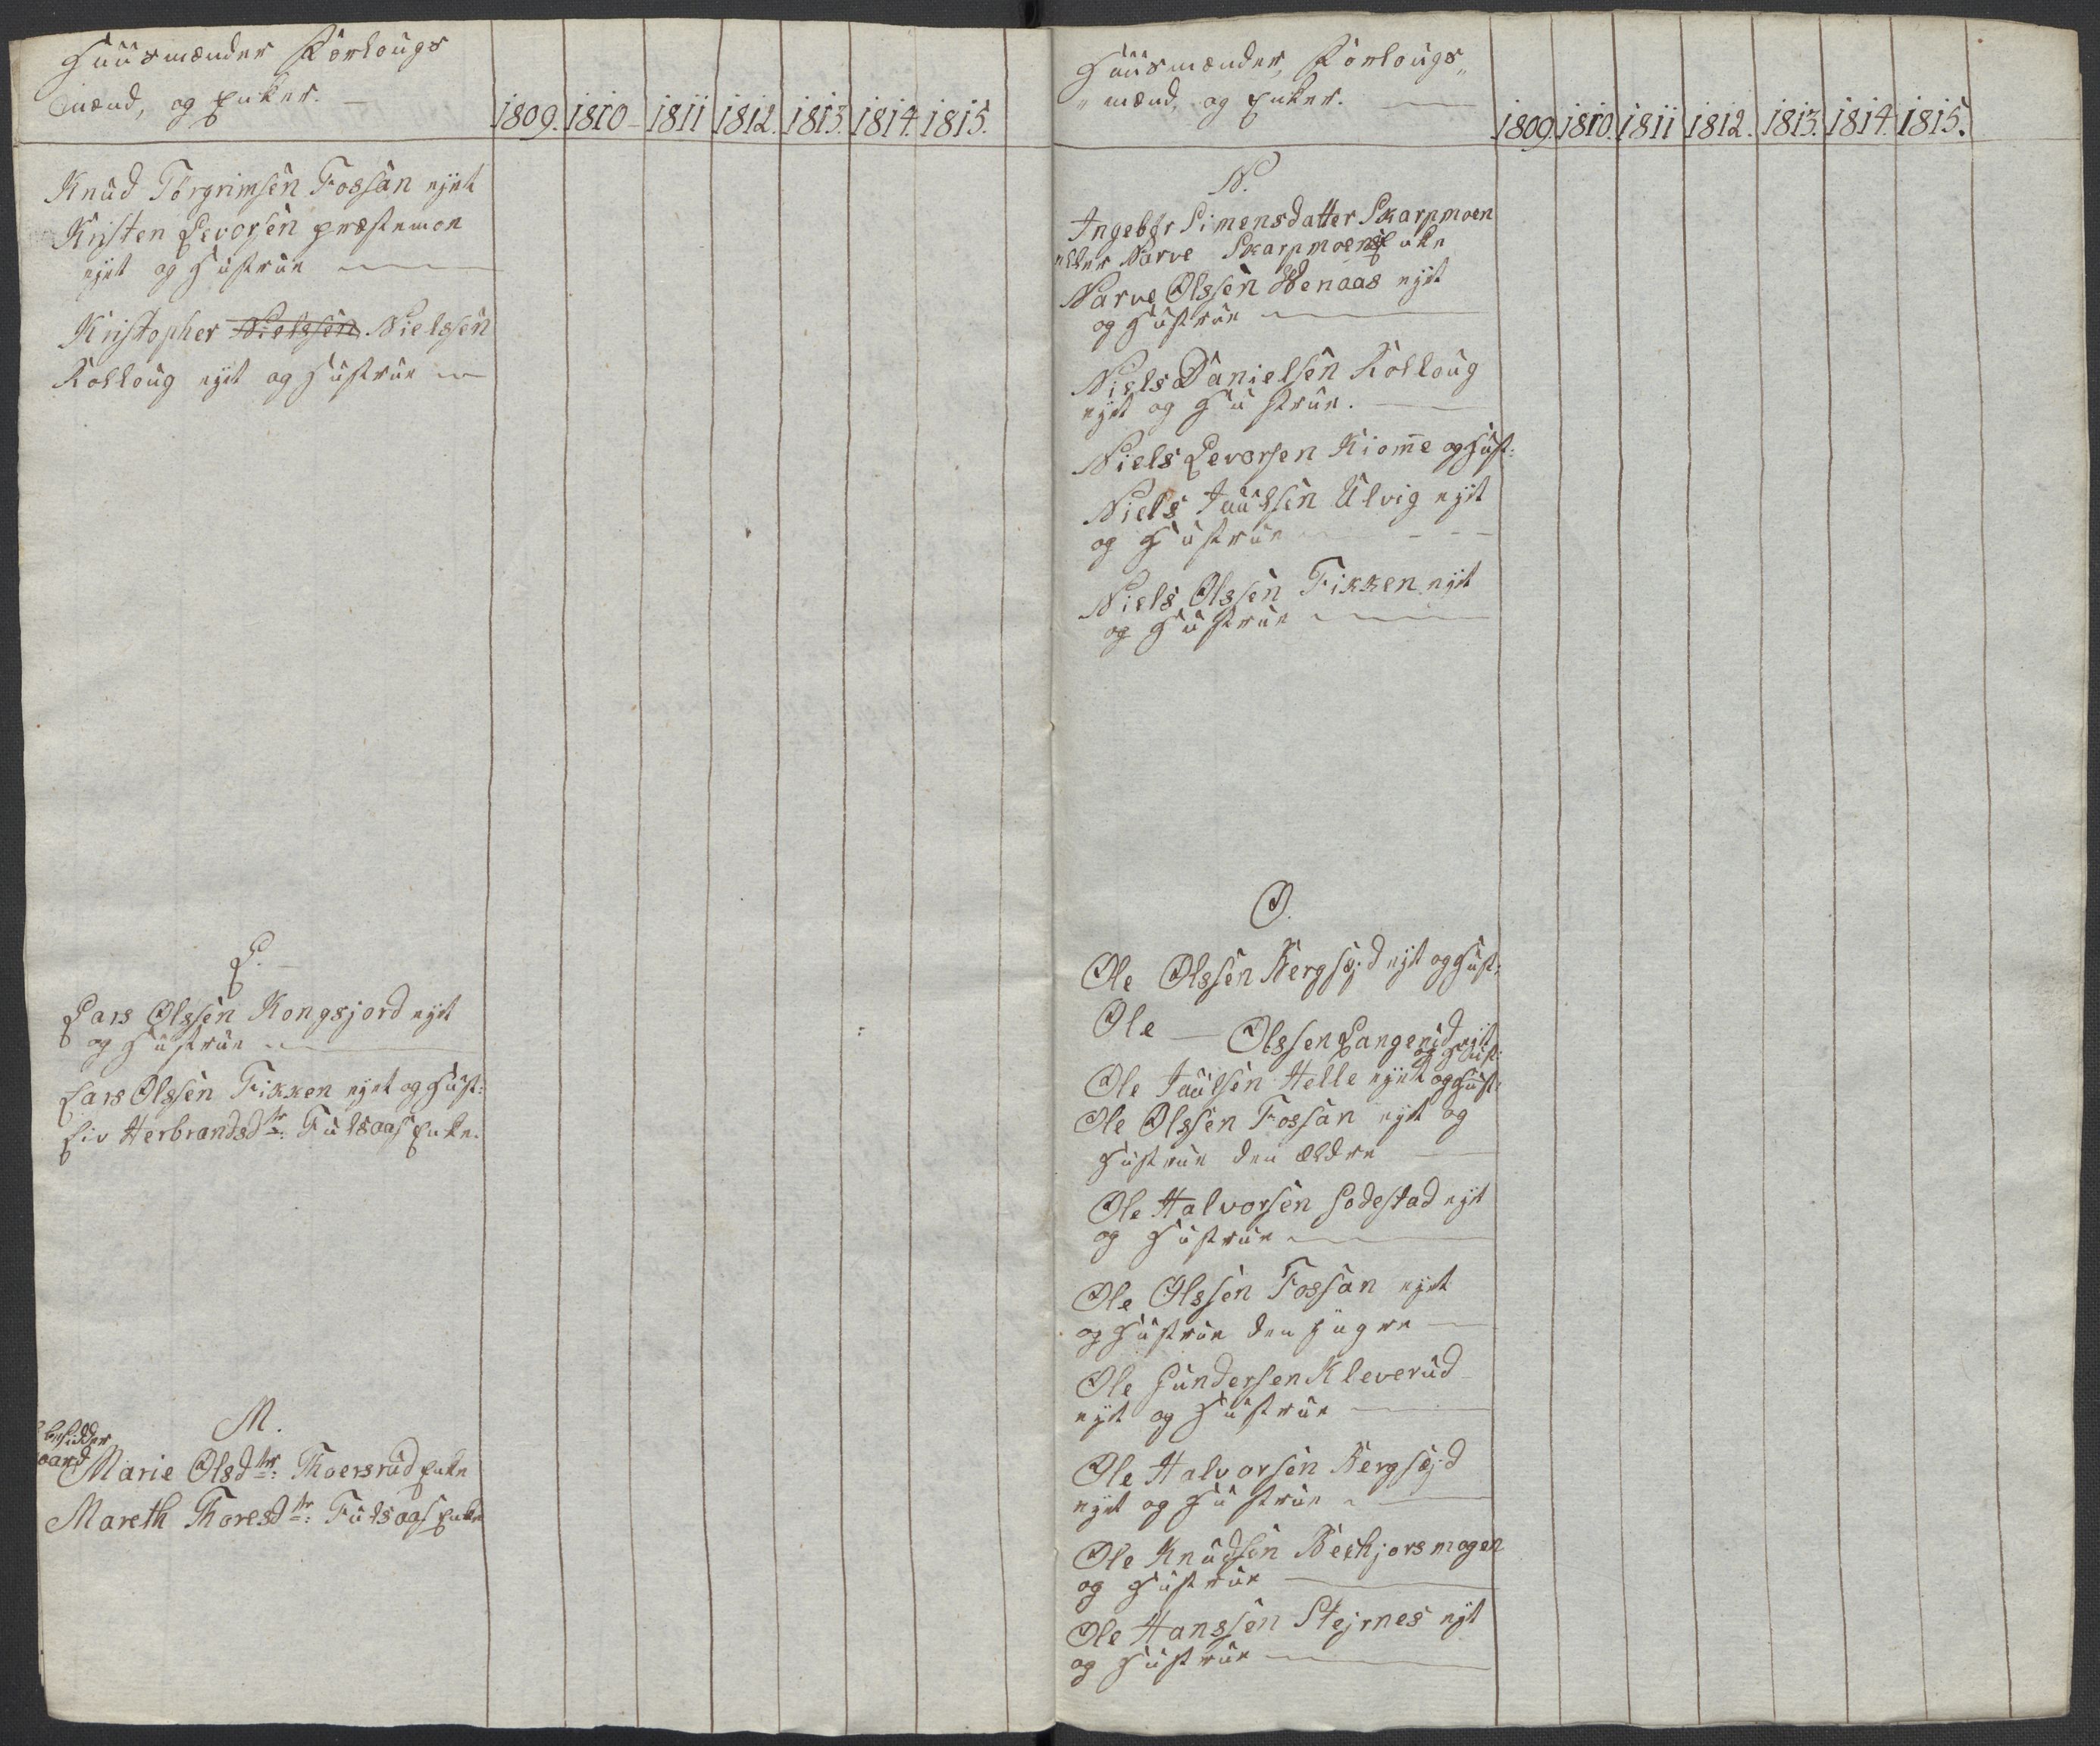 Huusmænder Forlougs
mænd, og Enker. —
1809. 1810 1811 1812. 1813. 1814. 1815.
Knud Torgrimsen Fossan eyet
Kristen Levorsen præstemoe
eyet og Hustrue
Kristopher Nielssen Nielssen
Kolloug eyet og Hustrue
L.
Lars Olssen Kongsjord eyet
og Hustrue
Lars Olssen Fikken eyet og Hust:
Liv Herbrandsdtr: Fulsaas Enke.
M.
Marie Olsdtr: Thoersrud Enke
Mareth Thoresdtr: Fulsaas Enke
Huusmænder, Forlougs„
„mænd, og Enker.
1809. 1810. 1811 1812. 1813. 1814. 1815.
N.
Ingebor Simensdatter Skarpmoen
eller Narve Skarpmoens Enke
Narve Olssen Wenaas eyet
og Hustrue
Niels Danielsen Kolloug
eyet og Hustrue.
Niels Levorsen Kiome og Hust:
Niels Paulsen Ulvig eyet
og Hustrue
Niels Olssen Fikken eyet
og Hustrue
O.
Ole Olssen Bergsejd eyet og Hust:
Ole — Olssen Langerud eyet
og Hust:
Ole Paulsen Helle eyet og Hust:
Ole Olssen Fossan eyet og
Hustrue den ældre
Ole Halvorsen Sodestad eyet
og Hustrue
Ole Olssen Fossan eyet
og Hustrue den yngre
Ole Gundersen Kleverud
eyet og Hustrue
Ole Halvorsen Bergsejd
eyet og Hustrue
Ole Knudsen Beshjorsmogen
og Hustrue
Ole Hanssen Stejrnes eyet
og Hustrue